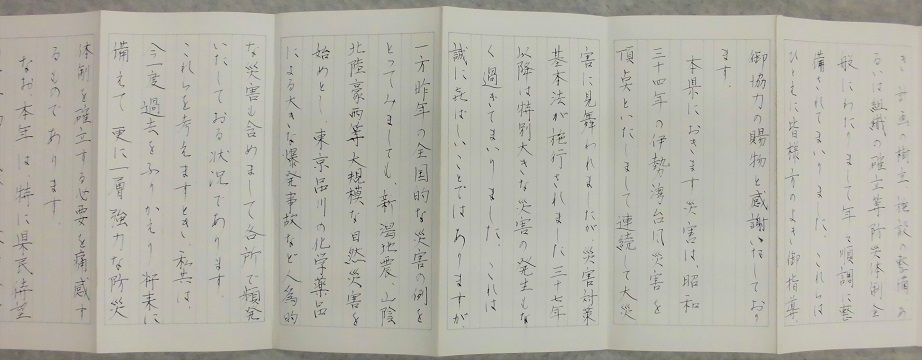 き 計画の樹立 施設の整備 あ
るいは組織の確立等防災体制全
般にわたりまして年々順調に整
備されてまいりました、これらは
ひとえに皆様方のよき御指導
御協力の賜物と感謝いたしており
ます.
本県におきます災害は昭和
三十四年の伊勢湾台風災害を
頂点といたしまして連続して大災
害に見舞われましたが災害対策
基本法が施行されました三十七年
以降は特別大きな災害の発生もな
く過ぎてまいりました、これは
誠に喜ばしいことではありますが、
一方昨年の全国的な災害の例を
とってみましても、新潟地震、山陰
北陸豪雨等大規模な自然災害を
始めとし東京品川の化学薬品
による大きな爆発事故など人為的
な災害も含めまして各所で頻発
いたしておる状況であります.
これらを考えますとき、私共は
今一度過去をふりかえり将来に
備えて更に一層強力な防災
体制を確立する必要を痛感す
るものであります
なお本年は特に県民待望